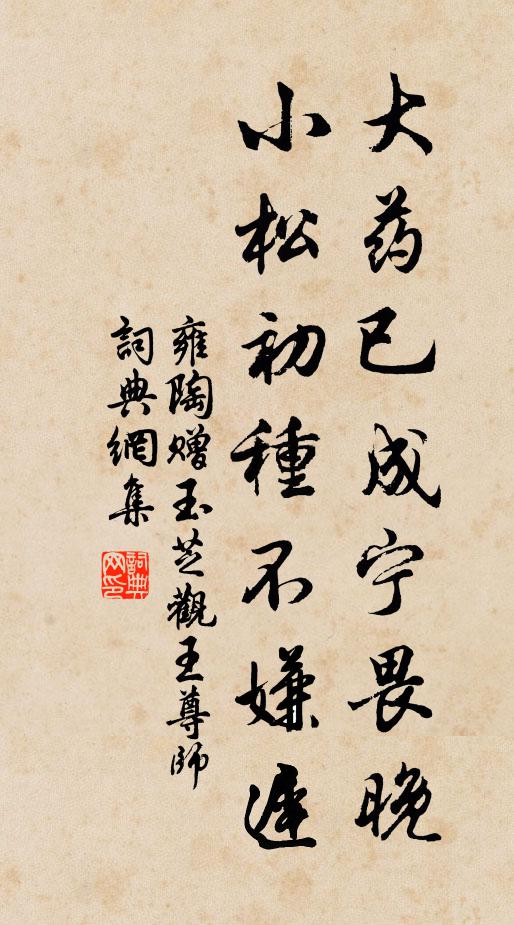 大药已成宁畏晚
小松初種不嫌遲
雍陶赠玉芝觀王尊師
詞典網集
詞典网印